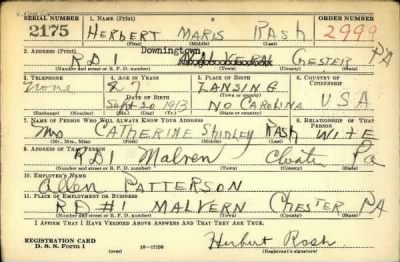 SERIAL NUMBER 1. NAME (Print) ORDER NUMBER
2175 HERBERT MARIS RASH 2999
(First) (Middle) (Last)
2. ADDRESS (Print) Downingtown
RD MALVERN CHESTER PA
(Number and street or R. F. D. number) (Town) (County) (State)
3. TELEPHONE 4. AGE IN YEARS 5. PLACE OF BIRTH 6. COUNTRY OF CITIZENSHIP
None 27 LANSING
DATE OF BIRTH (Town or county)
Sept 20 1913 NO CAROLINA USA
(Mo.) (Day) (Yr.) (State or country)
7. NAME OF PERSON WHO WILL ALWAYS KNOW YOUR ADDRESS 8. RELATIONSHIP OF THAT PERSON
Mrs CATHERINE SHIRLEY RASH WIFE
(Mr., Mrs., Miss) (First) (Middle) (Last)
9. ADDRESS OF THAT PERSON
RD1 Malvren Pa
(Number and street or R. F. D. number) (Town) (County) (State)
10. EMPLOYER'S NAME
Allen PATTERSON
11. PLACE OF EMPLOYMENT OR BUSINESS
RD #1 MALVERN CHESTER PA
(Number and street or R. F. D. number) (Town) (County) (State)
I AFFIRM THAT I HAVE VERIFIED ABOVE ANSWERS AND THAT THEY ARE TRUE.
REGISTRATION CARD
D. S. S. Form 1 (over) 16—17105 Herbert Rash
(Registrant's signature)